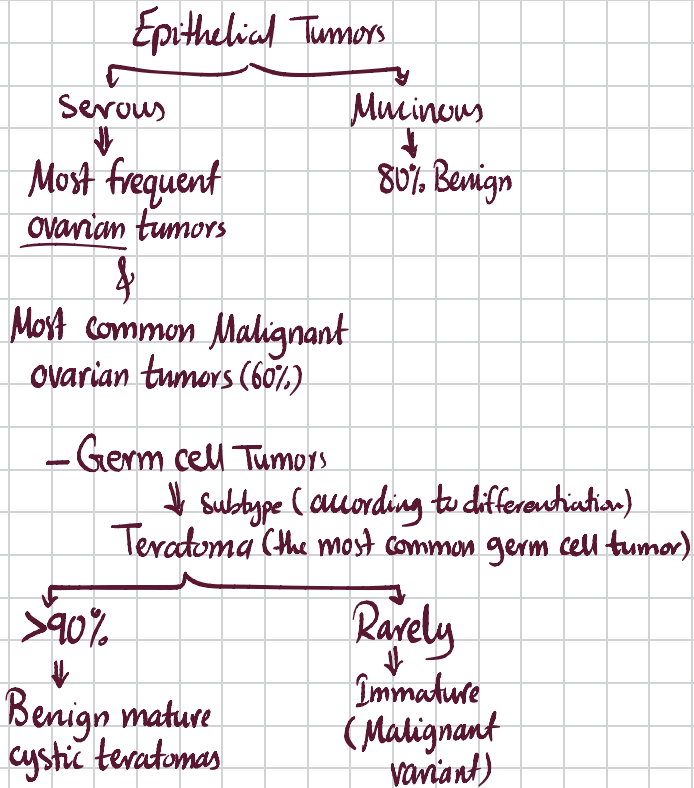 Epithelial Tumors
Serous
Mucinous
Most frequent
ovarian tumors
80% Benign
&
Most common Malignant
ovarian tumors (60%)
– Germ cell Tumors
Subtype (according to differentiation)
Teratoma (the most common germ cell tumor)
>90%
Rarely
Benign mature
cystic teratomas
Immature
(Malignant
variant)